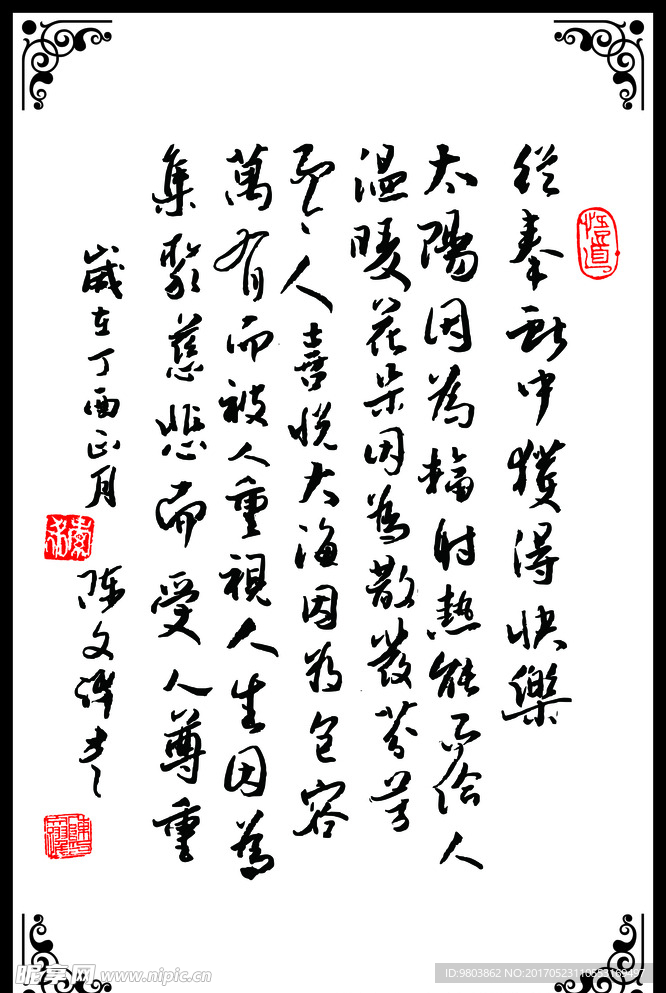 悟道
從奉獻中獲得快樂
太陽因為輻射熱能而給人
溫暖花朵因為散發芬芳
而令人喜悅大海因為包容
萬有而被人重視人生因為
集聚慈悲而受人尊重
歲在丁酉正月
陈文書
昵享网 www.nipic.cn
ID:9803862 NO:20170523110553189497